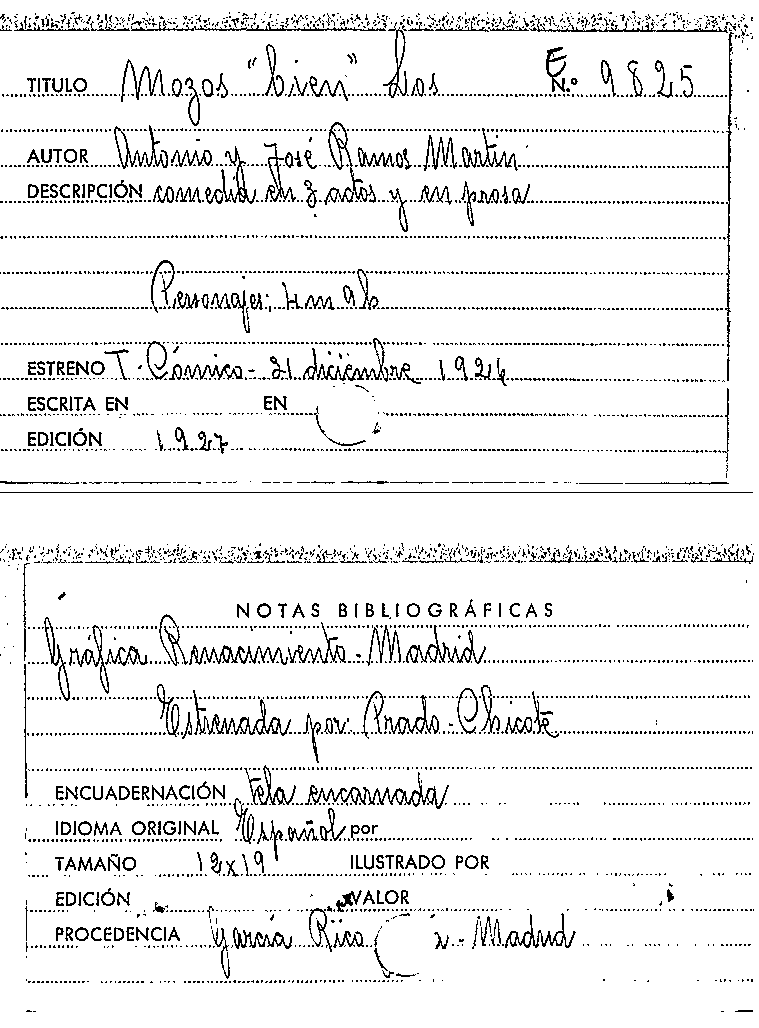 TITULO Mozos "bien" Los E N.º 9825
AUTOR Antonio y José Ramos Martín
DESCRIPCIÓN comedia en 3 actos y en prosa
Personajes; 4m 9h
ESTRENO T. Cómico - 21 diciembre 1926
ESCRITA EN EN
EDICIÓN 1927
NOTAS BIBLIOGRÁFICAS
Gráfica Renacimiento - Madrid
Estrenada por Prado-Chicote
ENCUADERNACIÓN tela encarnada
IDIOMA ORIGINAL Español por
TAMAÑO 12x19 ILUSTRADO POR
EDICIÓN VALOR
PROCEDENCIA García Rico - Madrid